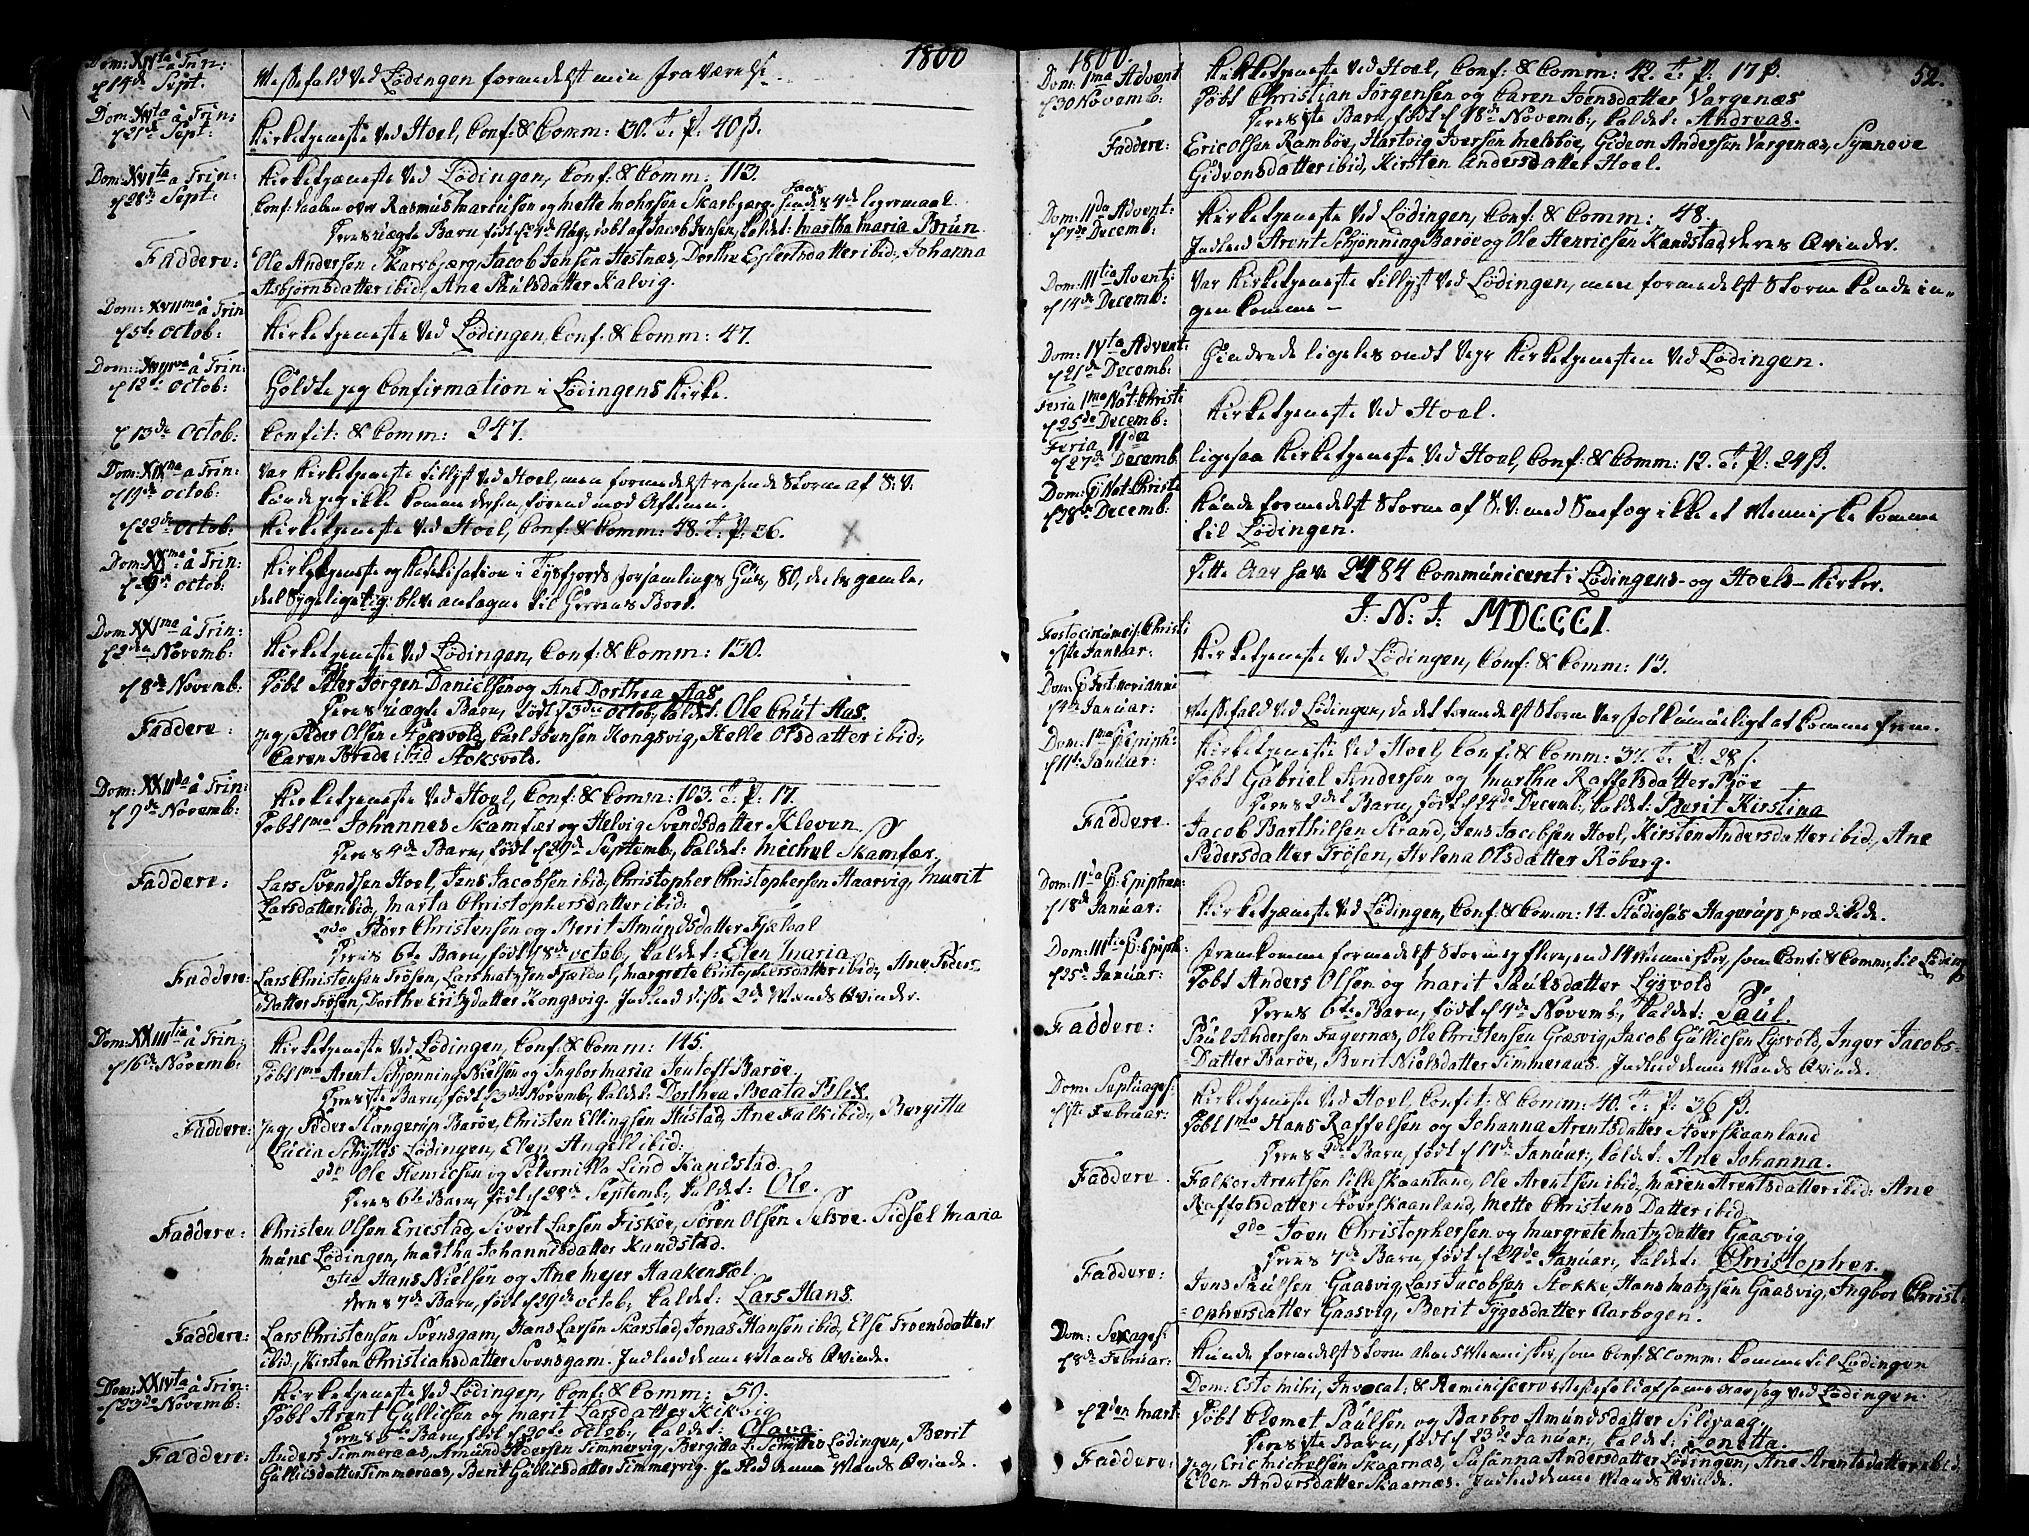 1800
Dom: XIVta à Trin:
d 14de Sept.
Messefald ved Lödingen formedelst min fraværelse.
Dom: XVta à Trin:
d 21de Sept:
Kirketjeneste ved Hoel, Conf: & Comm: 30. T. P. 40 β.
Dom: XVIta à Trin:
d 28de Sept:
Kirketjæneste ved Lödingen, Conf: & Comm: 113.
Rasmus Marcussen og Mette Mohrsen Skarbjerg 4de legermaal.
Deres uægte Barn, født d 4de Aug, døbt af Jacob Jensen, kaldet: Martha Maria Brun.
Faddere:
Ole Andersen Skarsbjærg, Jacob Jensen Hestnæs, Dorthe Eylertsdatter ibid:, Johanna
Asbjørnsdatter ibid:, Ane Paulsdatter Kalvig.
Dom: XVIIma à Trin
d 5te Octob:
Kirketjeneste ved Lödingen, Conf: & Comm: 47.
Dom: XVIIIva à Trin:
d 12te Octob:
Holdte jeg Confirmation i Lödingens Kirke.
d 13de Octob:
Confit: & Comm: 247.
Dom: XIXma à Trin:
d 19de Octob:
Var Kirketjeneste tillyst ved Hoel, men formedelst rasende Storm af S: V:
kunde jeg ikke komme dertil, førend mod Aftenen.
d 22de Octob:
Kirketjeneste ved Hoel, Conf: & Comm: 48. T. P. 36.
Dom: XXma: à Trin:
d 29de Octob:
Kirketjeneste og Katekisation i Tysfjords forsamlings Huus, 80, deels gamle,
deels sygelige blev antagne til Herrens Bord.
Dom: XXIma à Trin:
d 2den Novemb:
Kirketjeneste ved Lödingen, Conf: & Comm: 130.
d 8de Novemb:
Døbt Peter Jørgen Danielsen og Ane Dorthea Aas
Deres uægte Barn, født d 3die Octob, kaldet: Ole Cnut Aas.
Faddere:
jeg, Peder Olsen Stoksvold, Carl Jensen Kongsvig, Helle Olsdatter ibid:,
Caren Brede ibid Stoksvold.
Dom: XXIIda à Trin:
d 9de Novemb:
Kirketjeneste ved Hoel, Conf: & Comm: 103. T. P. 17.
Døbt 1mo Johannes Skamfær og Helvig Svendsdatter Kleven
Deres 4de Barn, født d 29de Septemb, kaldet: Michel Skamfær.
Faddere:
Lars Svendsen Hoel, Jens Jacobsen ibid, Christopher Christophersen Haarvig, Marit
Larsdatter ibid:, Marta Christophersdatter ibid:
2do Peder Christensen og Berit Amundsdatter Fjældal
Deres 6te Barn, født d 8de Octob, kaldet: Elen Maria
Faddere:
Lars Christensen Trösen, Lars Matzsen Fjældal, Margrete Cristophersdatter ibid:, Ane Peders
Datter Trösen, Dorthe Eritzdatter Kongsvig. Indled disse 2de Mænds Qvinder.
Dom: XXIIItia à Trin:
d 16de Novemb:
Kirketjeneste ved Lödingen, Conf: & Comm: 145.
Døbt 1mo Arent Schjönning Nielsen og Ingbor Maria Jentoft Baröe
Deres 1te Barn, født d 3die Novemb, kaldet: Dorthea Beata Blix.
Faddere:
jeg, Peder Stangerup Baröe, Christen Ellingsen Hustad, Ane Falk ibid:, Bergitta
Lucia Schyttes Lödingen, Elen Angell ibid:
2do Ole Henricsen og Peternilla Lind Kandstad.
Deres 6te Barn, født d 22de Septemb, kaldet: Ole.
Faddere:
Christen Olsen Ericstad, Sivert Larsen Fiskøe, Søren Olsen Selsøe. Sidsel Maria
Munc Lödingen, Martha Johannisdatter Kundstad.
3tio Hans Nielsen og Ane Mejer Haakensæl.
Deres 7de Barn, født d 29de Octob, kaldet: Lars Hans.
Faddere:
Lars Christensen Svensgam, Hans Larsen Skarstad, Jonas Hansen ibid, Else Troensdatter
ibid:, Kirsten Christiansdatter Svensgam. Indled denne Mands Qvinde.
Dom: XXIVta à Trin:
d 23de Novemb:
Kirketjeneste ved Lödingen, Conf: & Comm: 50.
Døbt Arent Gullicsen og Marit Larsdatter Kikvig
Deres Barn, født d 20de Octob, kaldet: Olava
Faddere:
Anders Timmeraas, Amund Pedersen Timmervig, Bergitta L: Schyttes Lödingen, Berit
Gullicsdatter Timmeraas, Berit Gullicsdatter Timmervig. Indled denne Mands Qvinde.
1800.
52.
Dom: 1ma Advent
d 30 Novemb:
Kirketjeneste ved Hoel, Conf: & Comm: 42. T. P: 17 β.
Døbt Christian Jörgensen og Caren Joensdatter Vargenæs
Deres 1te Barn, født d 18de Novemb:, kaldet: Andreas.
Faddere:
Eric Olsen Ramböe, Hartvig Iversen Melsböe, Gideon Andersen Vargenæs, Synnove
Gidionsdatter ibid, Kirsten Andersdatter Hoel.
Dom: IIda Advent:
d 7de Decemb:
Kirketjeneste ved Lödingen, Conf: & Comm: 48.
Indled Arent Schjönning Baröe og Ole Henricsen Kandstad, deres Qvinder.
Dom: IIItia Avent:
d 14de Decemb:
Var Kirketjeneste tillyst ved Lödingen, men formedelst Storm kunde in-
gen komme –
Dom: IVta Advent:
d 21de Decemb:
Hindrede ligeles ondt Vejr Kirketjenesten ved Lödingen.
Feria 1ma Nat: Christi
d 25de Decemb:
Kirketjeneste ved Hoel.
Feria IIda
d 27de Decemb
ligesaa Kirketjeneste ved Hoel, Conf: & Comm: 12. T. P: 24 β.
Dom: p Nat: Christi
d 28de Decemb:
Kunde formedelst Storm af S: V: med Snefog ikke et Menniske komme
til Lödingen.
Dette Aar have 2484 Communiceret i Lödingens- og Hoels-Kirker.
J: N: J: MDCCCI.
Festo circumcis: Christi
d 1te Januar:
Kirketjeneste ved Lödingen, Conf: & Comm: 13.
d 4de Januar:
Messefald ved Lödingen, da det formedelst Storm var Folk umueligt at komme frem.
Dom: 1ma p Epiph:
d 11te Januar:
Kirketjeneste ved Hoel, Conf: & Comm: 37. T. P: 28 β.
Døbt Gabriel Andersen og Martha Raffelsdatter Böe
Deres 2det Barn, født d 24de Decemb:, kaldet: Berit Kirstina
Faddere.
Jacob Barthilsen Strand, Jens Jacobsen Hoel, Kirsten Andersdatter ibid:, Ane
Pedersdatter Trösen, Helena Olsdatter Röberg.
Dom: IIda p: Epiphan:
d 18de Januar:
Kirketjæneste ved Lödingen, Conf: & Comm: 14. Studiosus Hagerup prædikede.
Dom: IIItia p: Epiph:
d 25de Januar:
fremkomme formedelst Storm ej flere, end 14 Mennisker, som Conf: & Comm:, til Löding
Døbt Anders Olsen og Marit Paulsdatter Lysvold
Deres 6te Barn, født d 4de Novemb, kaldet: Paul
Faddere:
Paul Andersen Fagernæs, Ole Christensen Græsvig, Jacob Gullicsen Lysvold, Inger Jacobs-
Datter Baröe, Berit Nielsdatter Timmeraas. Indled denne Mands Qvinde.
Dom: Septuages:
d 1te Februar:
Kirketjeneste ved Hoel, Confit: & Comm: 40. T. P: 36 β.
Døbt 1mo Hans Raffelsen og Johanna Arentsdatter Stoerskaanland
Deres Barn, født d 11de Januar:, kaldet: Ane Johanna.
Faddere.
Falkor Arentsen Lilleskaanland, Ole Arentsen ibid, Maren Arentsdatter ibid: Ane
Raffelsdatter Stoerskaanland, Mette Christens Datter ibid:
2do Joen Christophersen og Margrete Matzdatter Gaasvig
Deres 7de Barn, født d 24de Januar:, kaldet: Christopher.
Faddere:
Jens Paulsen Gaasvig, Lars Jacobsen Stokke, Hans Matzsen Gaasvig, Ingbor Christ
ophersdatter Gaasvig, Berit Tygesdatter Aarbogen.
Dom: Sexages:
d 8de Februar:
Kunde formedelst Storm alene 5 Mennisker, som Conf: & Comm: komme til Lödingen
Dom: Esto mihi, Invocat: & Reminiscere Messefald af samme Aarsag ved Lödingen.
d 2den Mart:
Døbt Clemet Paulsen og Barbro Amundsdatter Sildvaag,
Deres 1te Barn, født d 23de Januar:, kaldet: Jonetta.
Faddere:
jeg, Eric Michelsen Skaarnæs, Susanna Andersdatter Lödingen, Ane Arentsdatter ibid,
Elen Andersdatter Skaarnæs. Indled denne Mands Qvinde.